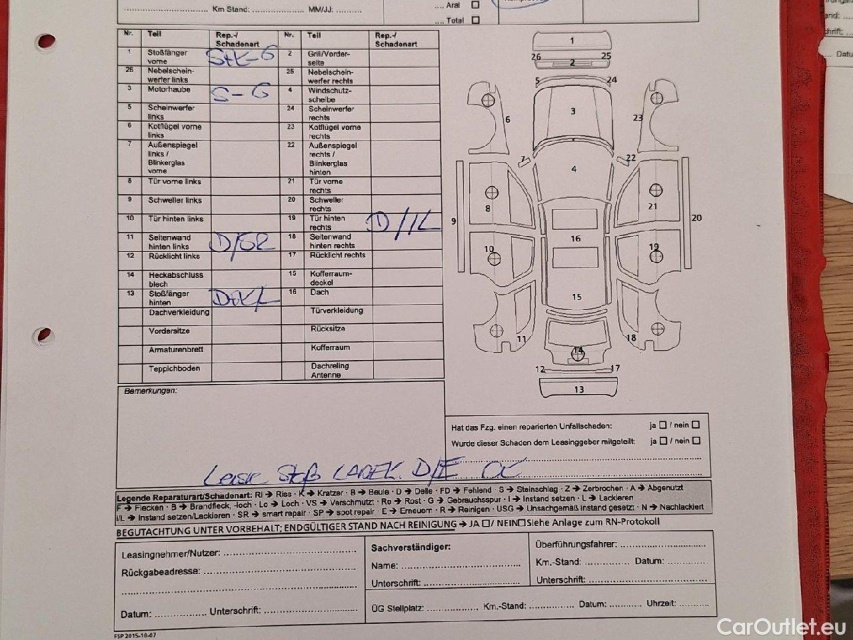 Km Stand: MM/JJ:
Aral
Total
Nr. Teil Rep.-/ Schadenart Nr. Teil Rep.-/ Schadenart
1 Stoßfänger vorne 2 Grill/Vorder- seite
26 Nebelschein- werfer links 25 Nebelschein- werfer rechts
3 Motorhaube S-G 4 Windschutz- scheibe
5 Scheinwerfer links 24 Scheinwerfer rechts
6 Kotflügel vorne links 23 Kotflügel vorne rechts
7 Außenspiegel links / Blinkerglas vorne 22 Außenspiegel rechts / Blinkerglas hinten
8 Tür vorne links 21 Tür vorne rechts
9 Schweller links 20 Schweller rechts
10 Tür hinten links 19 Tür hinten rechts D/IL
11 Seitenwand hinten links D/SR 18 Seitenwand hinten rechts
12 Rücklicht links 17 Rücklicht rechts
14 Heckabschluss blech 15 Kofferraum- deckel
13 Stoßfänger hinten 16 Dach
Dachverkleidung Türverkleidung
Vordersitze Rücksitze
Armaturenbrett Kofferraum
Teppichboden Dachreling Antenne
1
26 25
2
5 24
3
6 23
7 22
4
8 21
9 20
16
10 19
15
11 18
14
12 17
13
Bemerkungen:
Hat das Fzg. einen reparierten Unfallschaden: ja / nein
Wurde dieser Schaden dem Leasinggeber mitgeteilt: ja / nein
Legende Reparaturart/Schadenart: RI → Riss - K → Kratzer - B → Beule - D → Delle - FD → Fehlend - S → Steinschlag - Z → Zerbrochen - A → Abgenutzt
F → Flecken - B → Brandfleck, -loch - Lo → Loch - VS → Verschmutz - Ro → Rost - G → Gebrauchsspur - I → Instand setzen - L → Lackieren
I/L → Instand setzen/Lackieren - SR → smart repair - SP → spot repair - E → Erneuern - R → Reinigen - USG → Unsachgemäß instand gesetz - N → Nachlackiert
BEGUTACHTUNG UNTER VORBEHALT; ENDGÜLTIGER STAND NACH REINIGUNG → JA / NEIN Siehe Anlage zum RN-Protokoll
Leasingnehmer/Nutzer:
Rückgabeadresse:
Datum: Unterschrift:
Sachverständiger:
Name:
Unterschrift:
Überführungsfahrer:
Km.-Stand: Datum:
Unterschrift:
ÜG Stellplatz: Km.-Stand: Datum: Uhrzeit:
FSP 2015-10-07
CarOutlet.eu